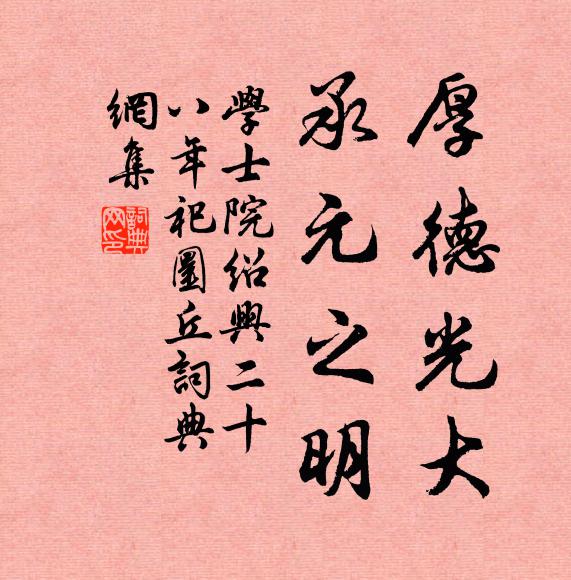 厚德光大
承元之明
學士院紹興二十
八年祀圜丘詞典
網集
詞典網印